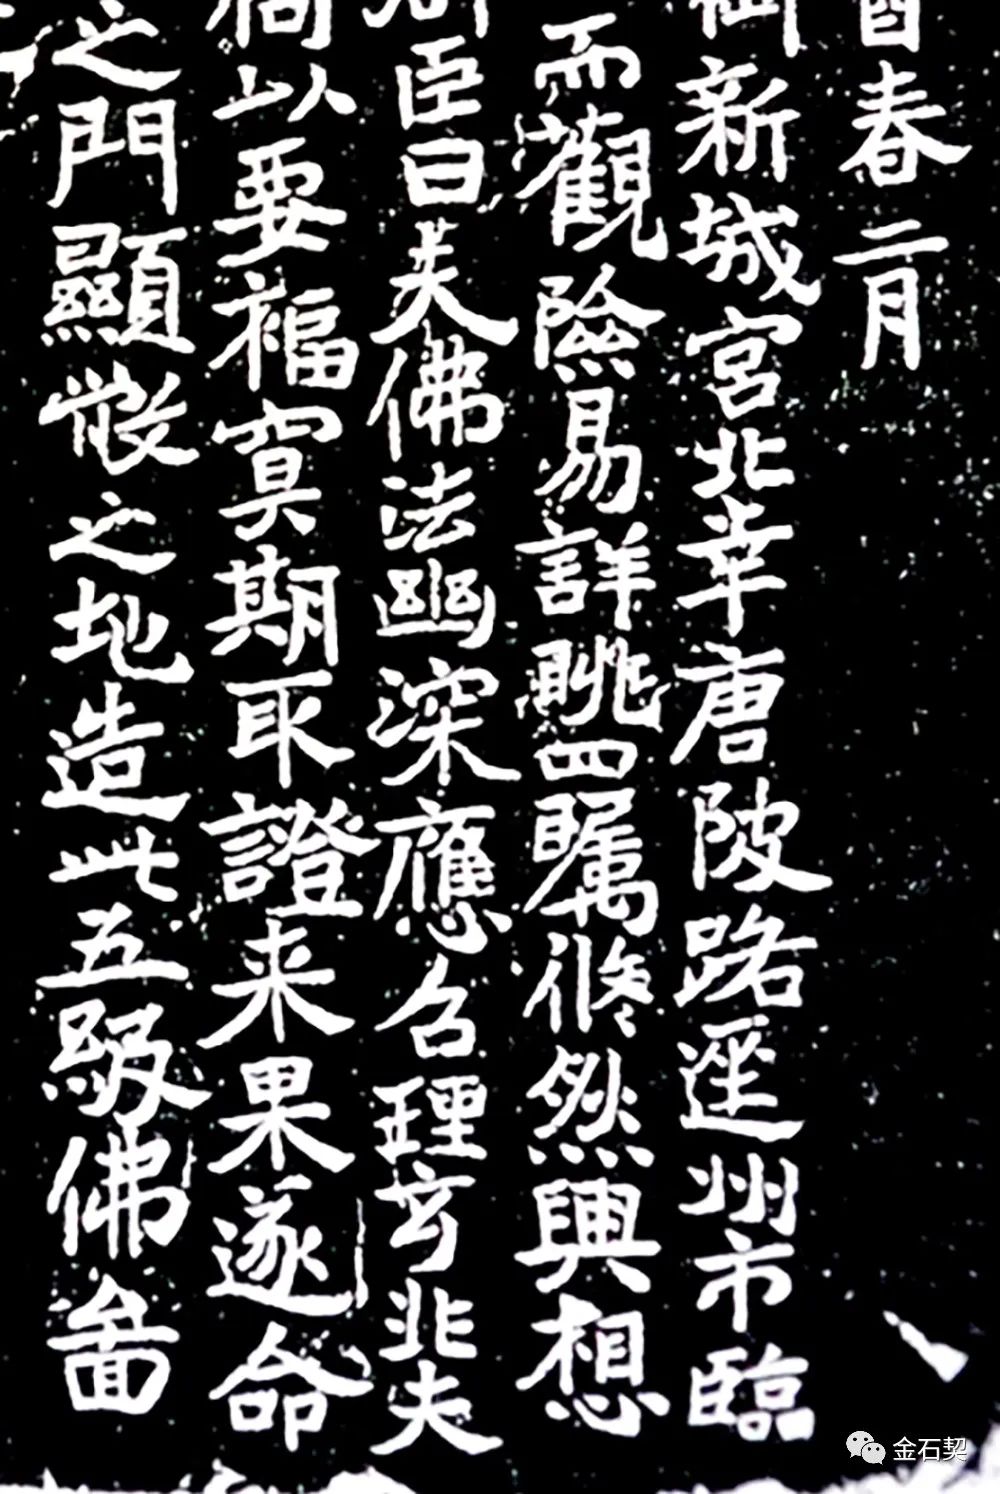 酉春二月
御新城宮北幸唐陂路逕州市臨
而觀險易詳眺四矚倏然興想
臣曰夫佛法幽深應召理玄非夫
何以要福冥期取證来果遂命
之門顯敞之地造此五級佛啚
金石契